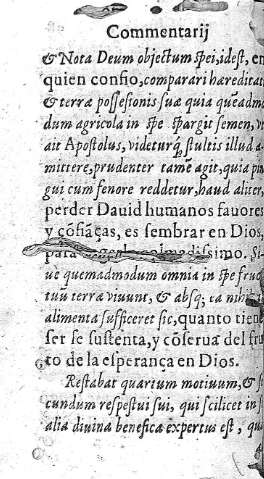 Commentarij
& Nota Deum objectum spei, idest, en
quien confio, comparari hæreditat
& terræ possessionis suæ quia queadmo
dum agricola in spe spargit semen, vt
ait Apostolus, videturq; stultis illud a-
mittere, prudenter tamē agit, quia pin
gui cum fenore reddetur, haud aliter,
perder Dauid humanos fauores
y cõfiãças, es sembrar en Dios,
para dissimo. Si-
ue quemadmodum omnia in spe fruc
tuū terræ viuunt, & absq; ea nihil
alimenta sufficeret sic, quanto tiene
ser se sustenta, y cõserua del fru
to de la esperança en Dios.
Restabat quartum motiuum, & se
cundum respectui sui, qui scilicet in se
alia diuina benefica expertus est, qua